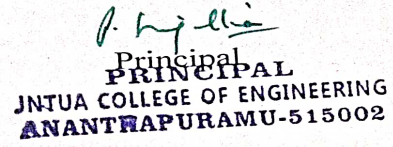 Principal
PRINCIPAL
JNTUA COLLEGE OF ENGINEERING
ANANTHAPURAMU-515002